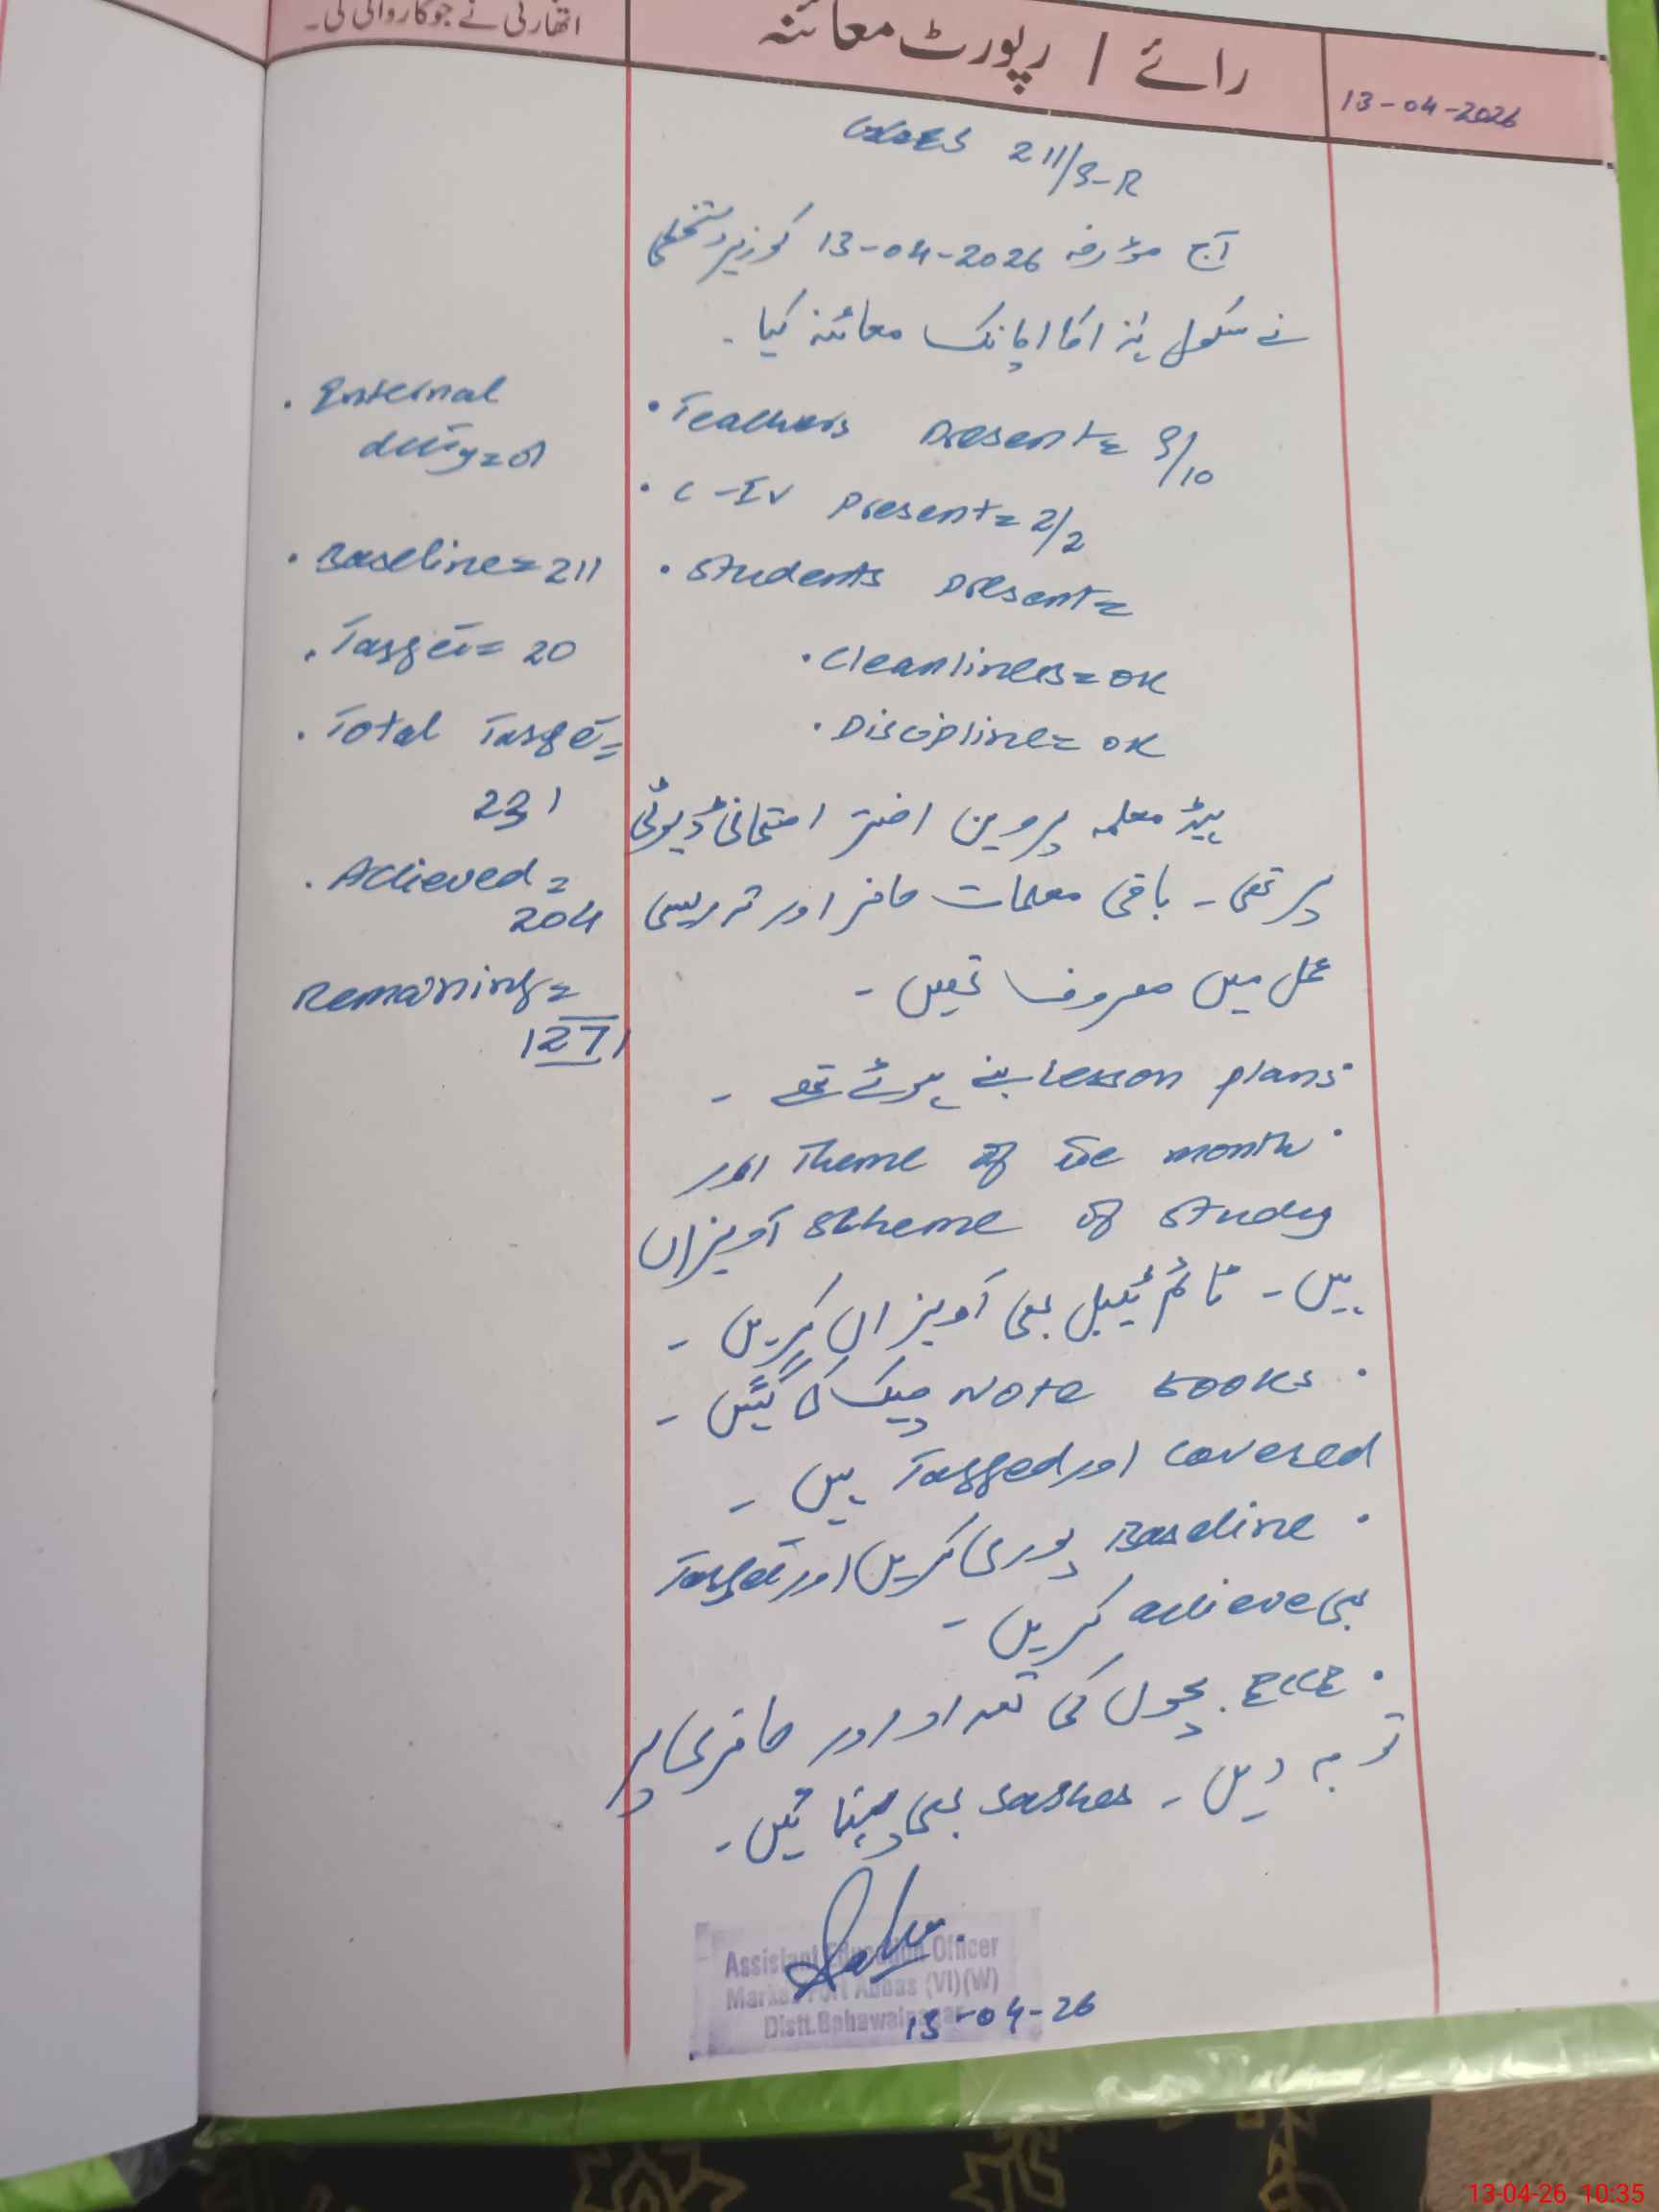 اتھارٹی نے جو کارروائی کی۔
رائے / رپورٹ معائنہ
13-04-2026
211/9-R
آج مؤرخہ 13-04-2026 کو زیر دستخطی
نے سکول ہٰذا کا اچانک معائنہ کیا۔
• Teachers present = 9/10
• C-IV present = 2/2
• Students present =
• Cleanliness = OK
• Discipline = OK
ہیڈ معلمہ پروین اختر امتحانی ڈیوٹی
پر تھی۔ باقی معلمات حاضر اور تدریسی
عمل میں مصروف تھیں۔
• Lesson plans بنے ہوئے تھے۔
• Theme of the month اور
Scheme of study آویزاں
ہیں۔ ٹائم ٹیبل بھی آویزاں کریں۔
• Note books چیک کی گئیں۔
Covered اور Tagged ہیں۔
• Baseline پوری کریں اور Target
بھی achieve کریں۔
• ECCE بچوں کی تعداد اور حاضری پر
توجہ دیں۔ Sashes بھی پہنائیں۔
• External
duty = 01
• Baseline = 211
• Target = 20
• Total Target =
231
• Achieved =
204
Remaining =
27
Assistant Education Officer
Markaz Fort Abbas (VI)(W)
Distt. Bahawalnagar
13-04-26
13-04-26 10:35